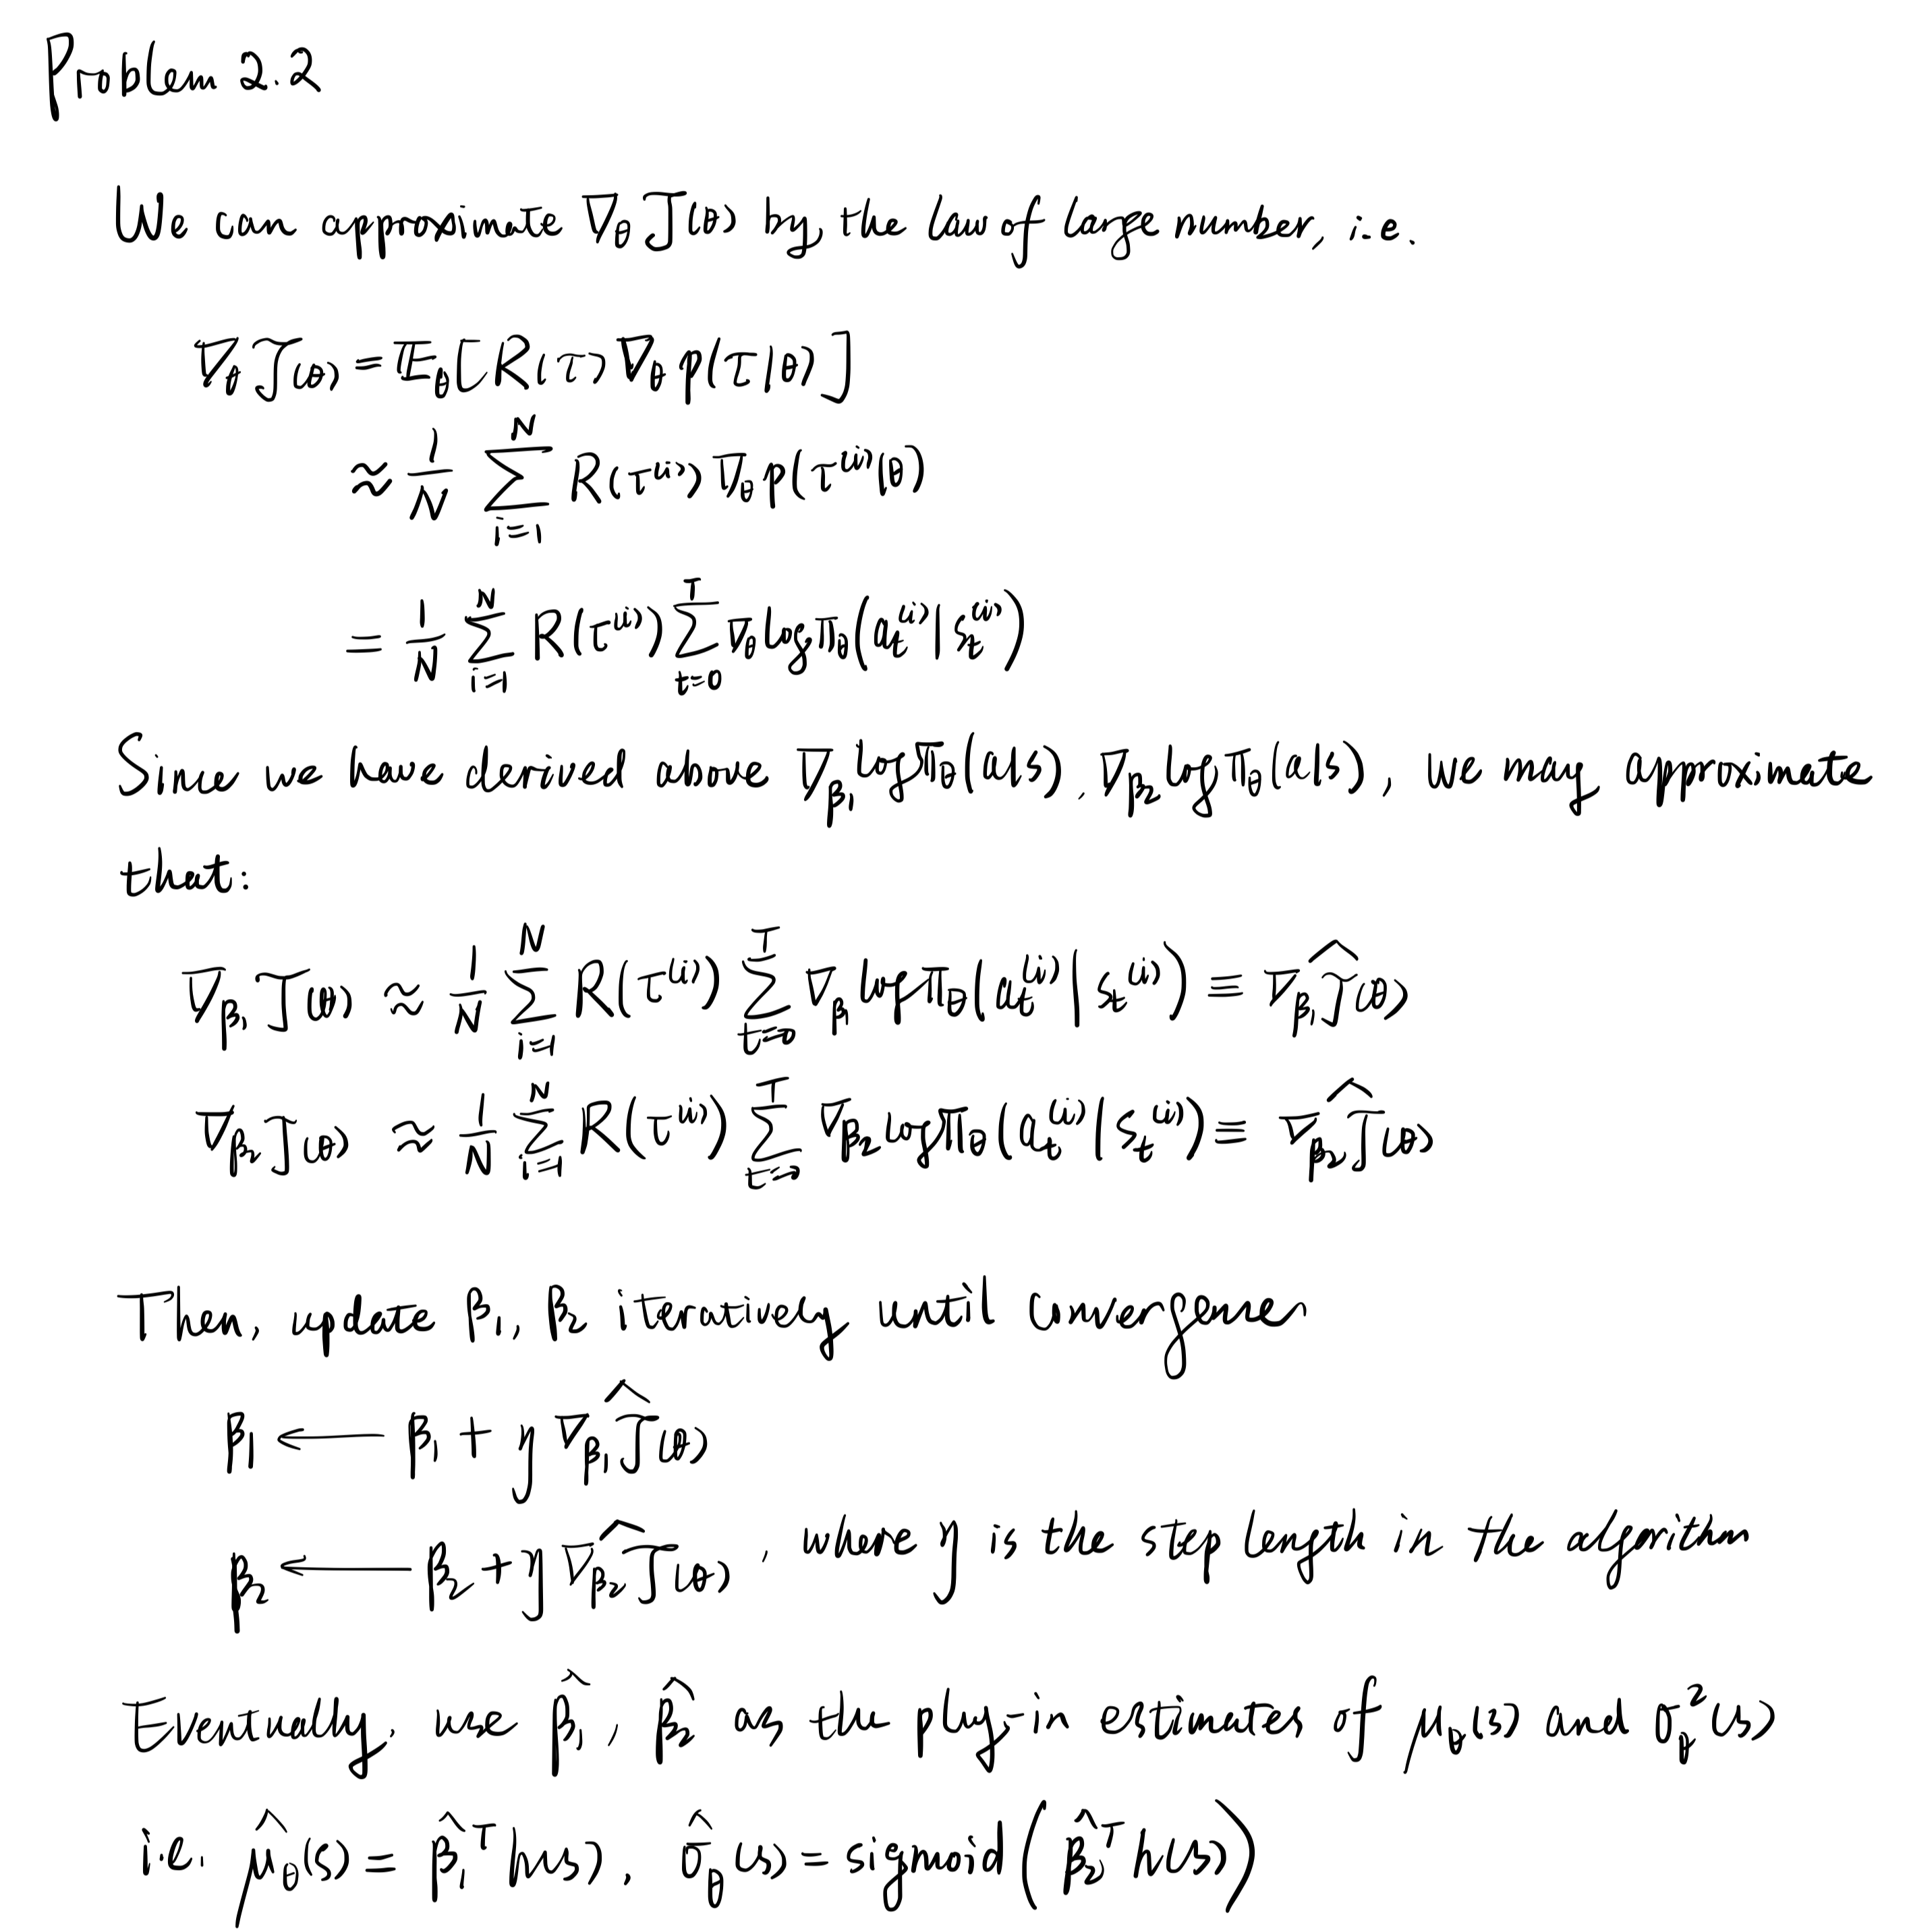 Problem 2.2
We can approximate ∇_θ J(θ) by the law of large number, i.e.
∇_θ J(θ) = E_θ[R(τ) ∇_θ p(τ|θ)]
≈ 1/N ∑_{i=1}^{N} R(τ^{(i)}) ∇_θ p(τ^{(i)}|θ)
= 1/N ∑_{i=1}^{N} R(τ^{(i)}) ∑_{t=0}^{T} ∇_θ log π_θ(a_t^{(i)} | s_t^{(i)})
Since we have derived above ∇_{β_1} log π_θ(a|s), ∇_{β_2} log π_θ(a|s), we may approximate
that:
∇_{β_1} J(θ) ≈ 1/N ∑_{i=1}^{N} R(τ^{(i)}) ∑_{t=0}^{T} ∇_{β_1} log π_θ(a_t^{(i)} | s_t^{(i)}) ≡ ∇_{β_1} Ĵ(θ)
∇_{β_2} J(θ) ≈ 1/N ∑_{i=1}^{N} R(τ^{(i)}) ∑_{t=0}^{T} ∇_{β_2} log π_θ(a_t^{(i)} | s_t^{(i)}) ≡ ∇_{β_2} Ĵ(θ)
Then, update β_1, β_2 iteratively until convergence
β_1 ← β_1 + η ∇_{β_1} Ĵ(θ)
β_2 ← β_2 + η ∇_{β_2} Ĵ(θ), where η is the step length in the algorithm
Eventually, use β̂_1, β̂_2 as the plug-in estimates of μ_θ(s) and σ_θ^2(s)
i.e. μ̂_θ(s) = β̂_1^T h(s), σ̂_θ(s) = sigmoid(β̂_2^T h(s))